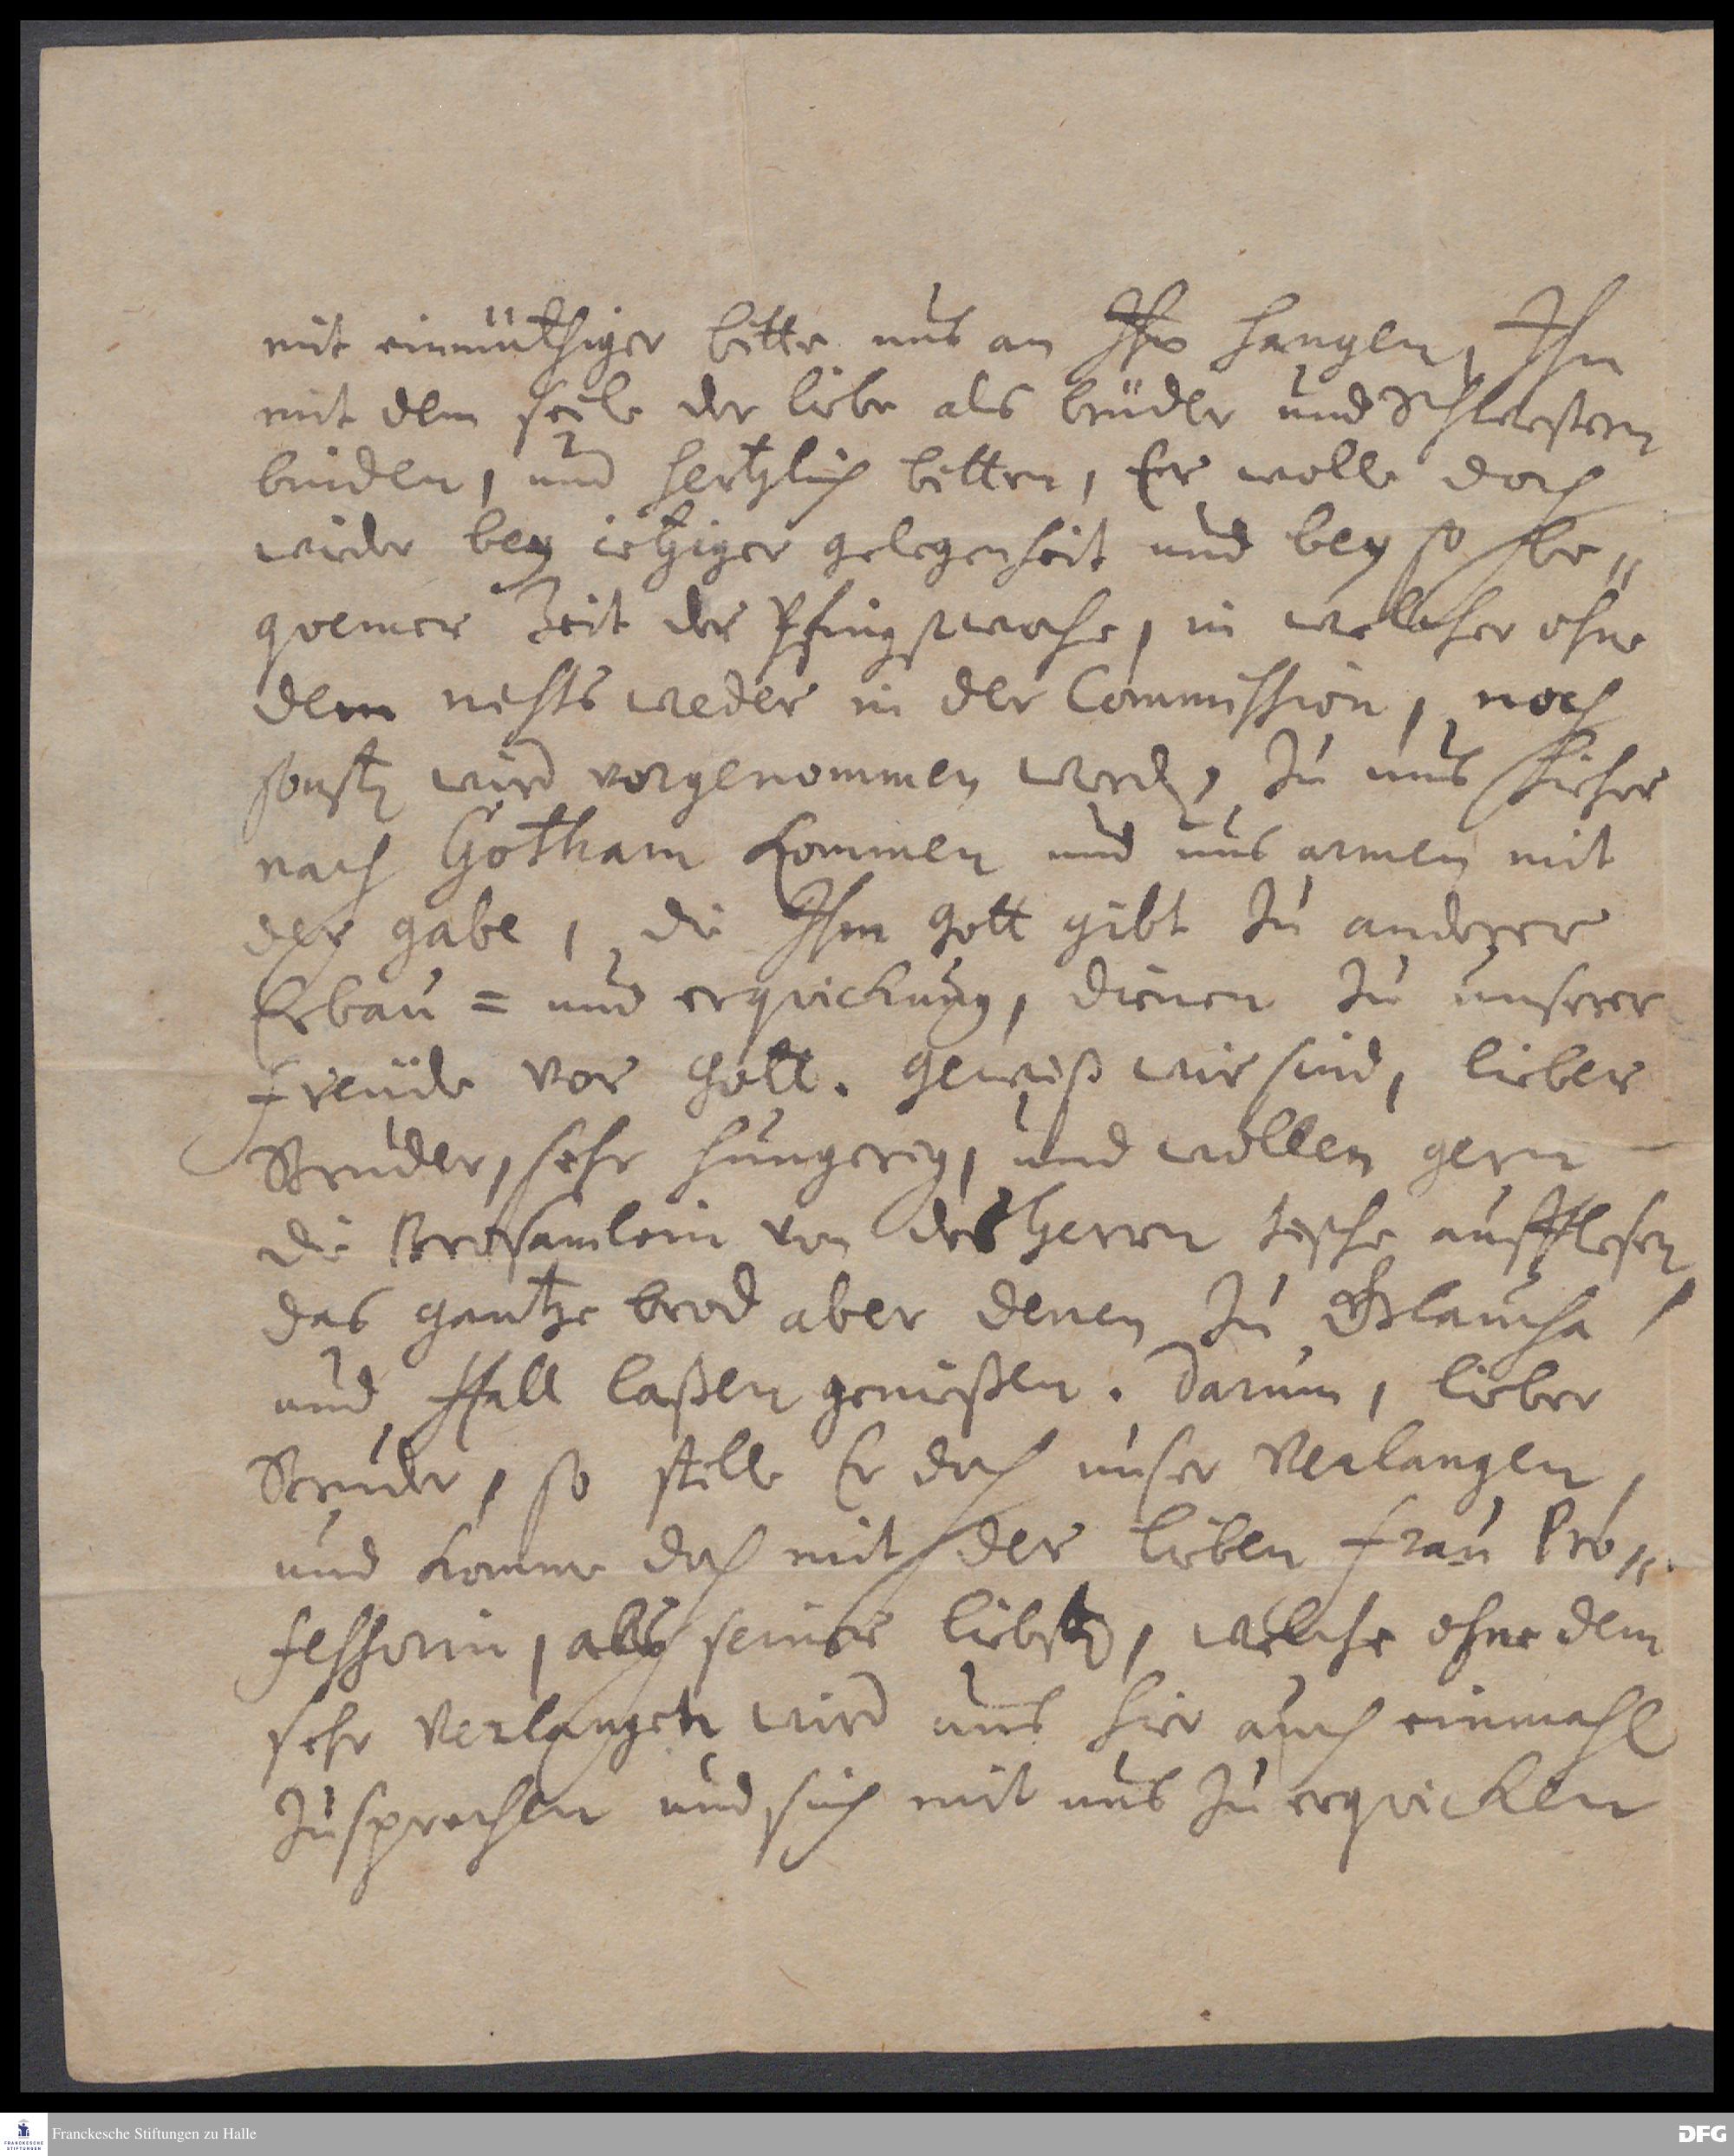 mit einmüthiger bitte uns an Ihn hangen, Ihn
mit dem seile der liebe als brüder und Schwestern
binden, und hertzlich bitten, Er wolle doch
wieder bey ietziger gelegenheit und bey so be„
qvemer Zeit der Pfingstwoche, in welcher ohne
dem nichts weder in der Commission, noch
sonsten wird vorgenommen werden, zu uns hieher
nach Gotham kommen und uns armen mit
der gabe, die Ihm Gott gibt zu anderer
Erbau= und erqvickung, dienen zu unserer
Freüde vor Gott. Gewiß wir sind, lieber
Bruder, sehr hungerig, und wollen gern
die Brosamlein von des Herren tische aufflesen
das gantze brod aber denen zu Glaucha /
und Hall laßen genießen. Darum, lieber
Bruder, so stelle Er doch unser Verlangen,
und komme doch mit der lieben Frau Pro„
fessorin, als seiner liebsten, welche ohne dem
sehr Verlangen wird uns hier auch einmahl
zusprechen und sich mit uns zu erqvicken
Franckesche Stiftungen zu Halle
FRANCKESCHE
STIFTUNGEN
DFG